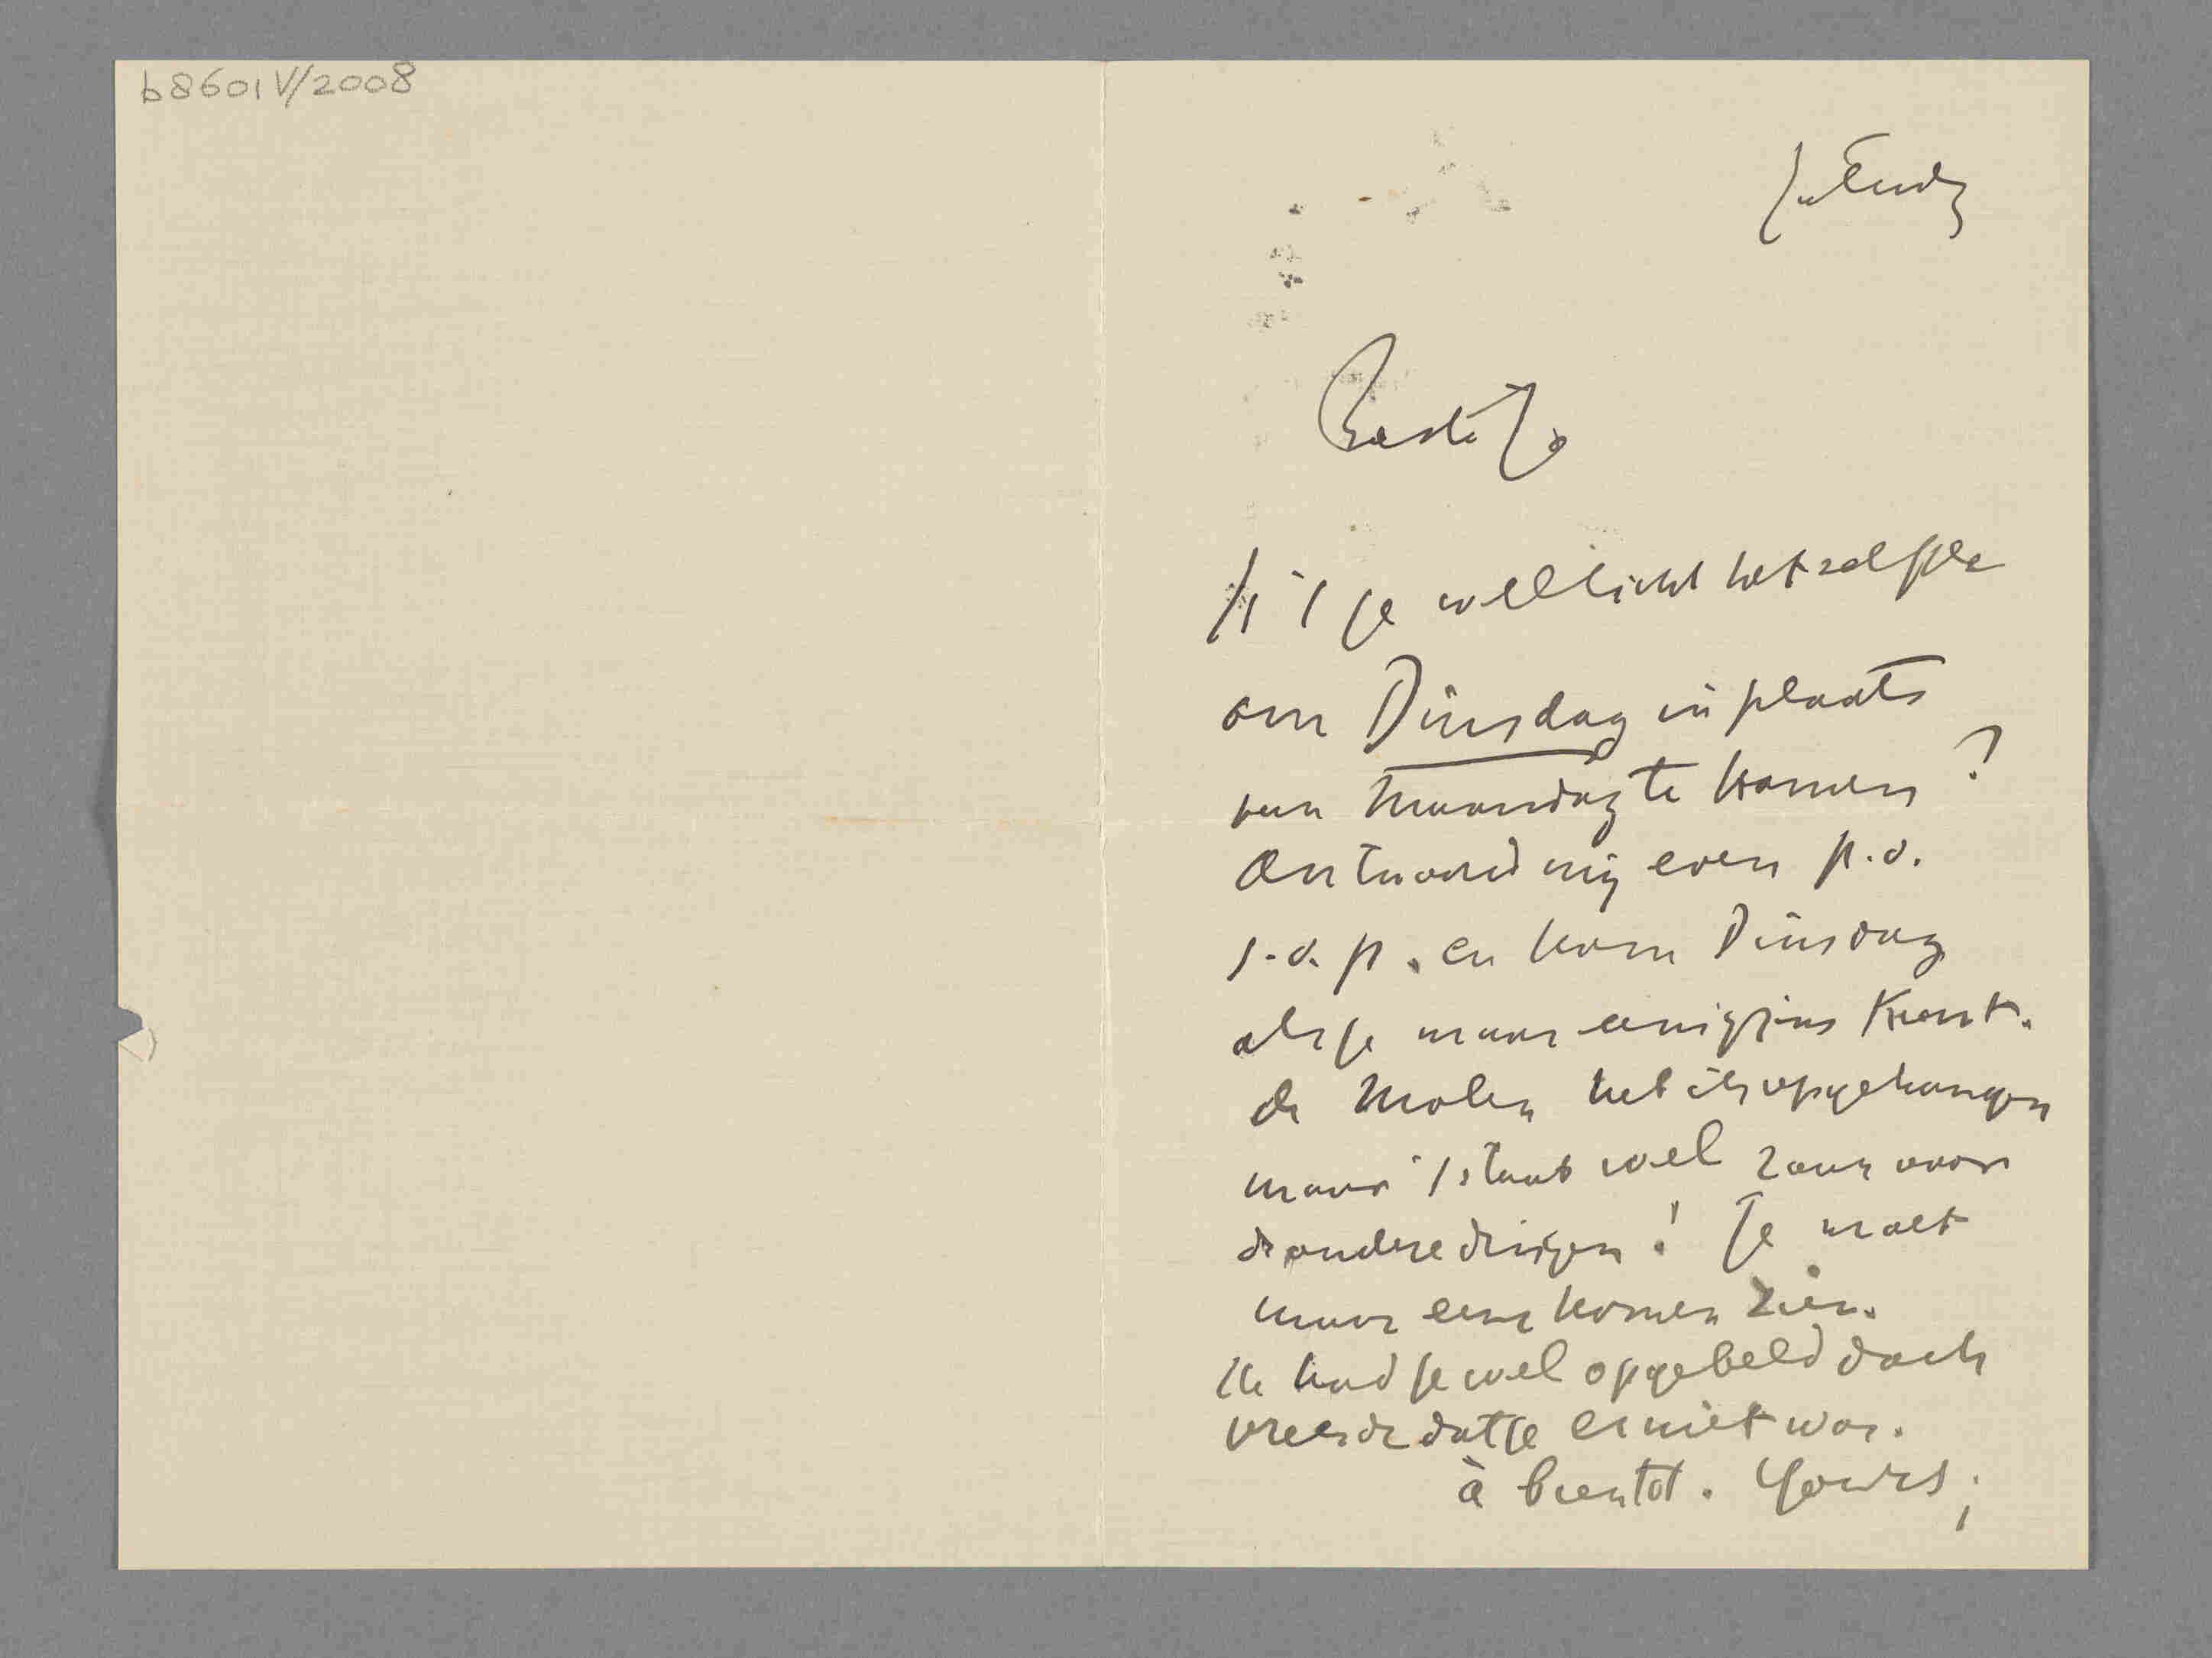 b8601 V/2008
Zaterdag
Beste Jo
Is 't je wellicht hetzelfde
om Dinsdag in plaats
van Maandag te komen?
Antwoord mij even p.o.
s.v.p. en kom Dinsdag
als je maar eenigzins kunt.
de Molen heb ik opgehangen
maar 't staat wel raar voor
de andere dingen! Je moet
maar eens komen zien.
Ik had je wel opgebeld doch
vreesde dat je er niet was.
à bientôt. Yours;